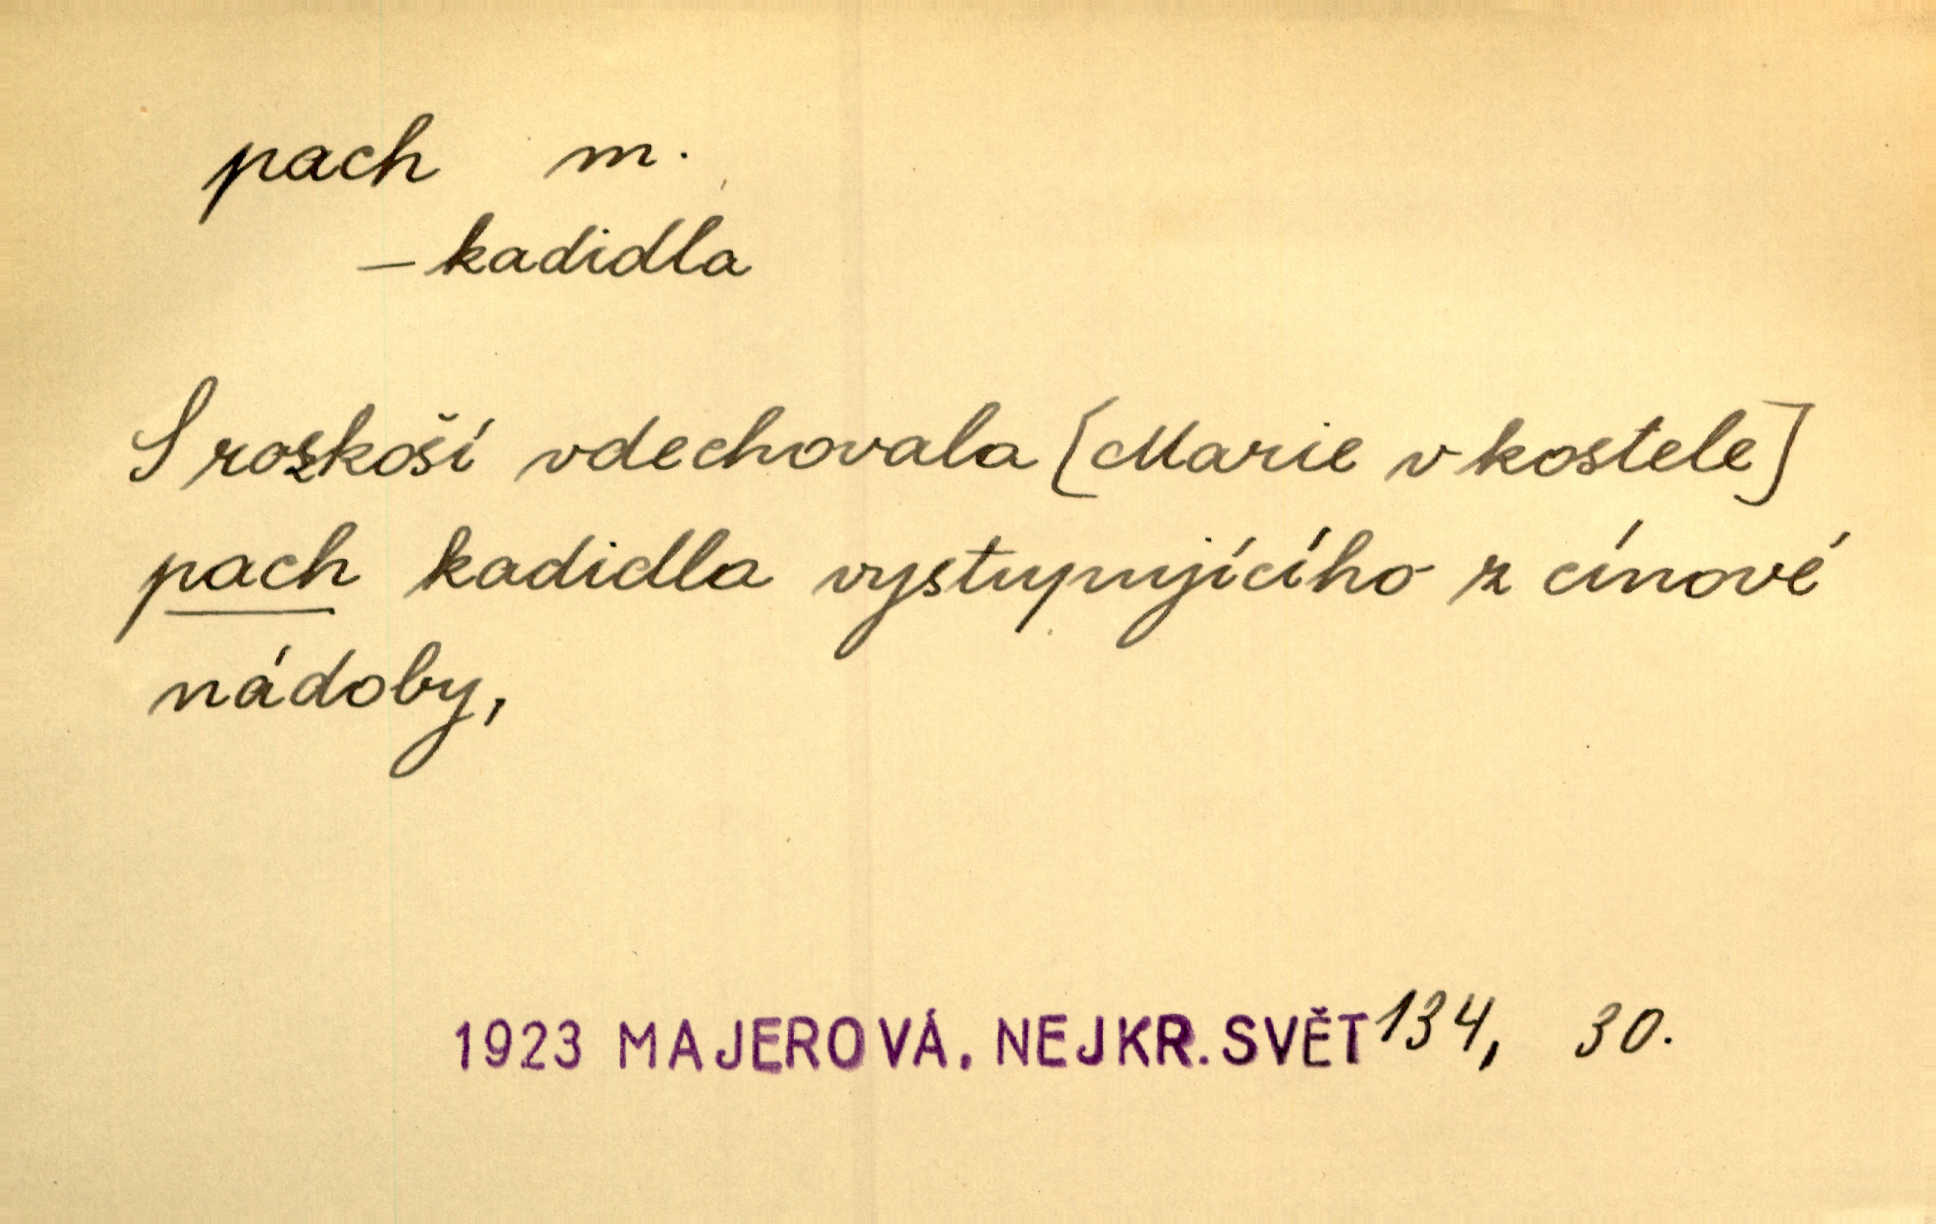 pach m.
– kadidla
S rozkoší vdechovala [Marie v kostele]
pach kadidla vystupujícího z cínové
nádoby,
1923 MAJEROVÁ. NEJKR. SVĚT 134, 30.